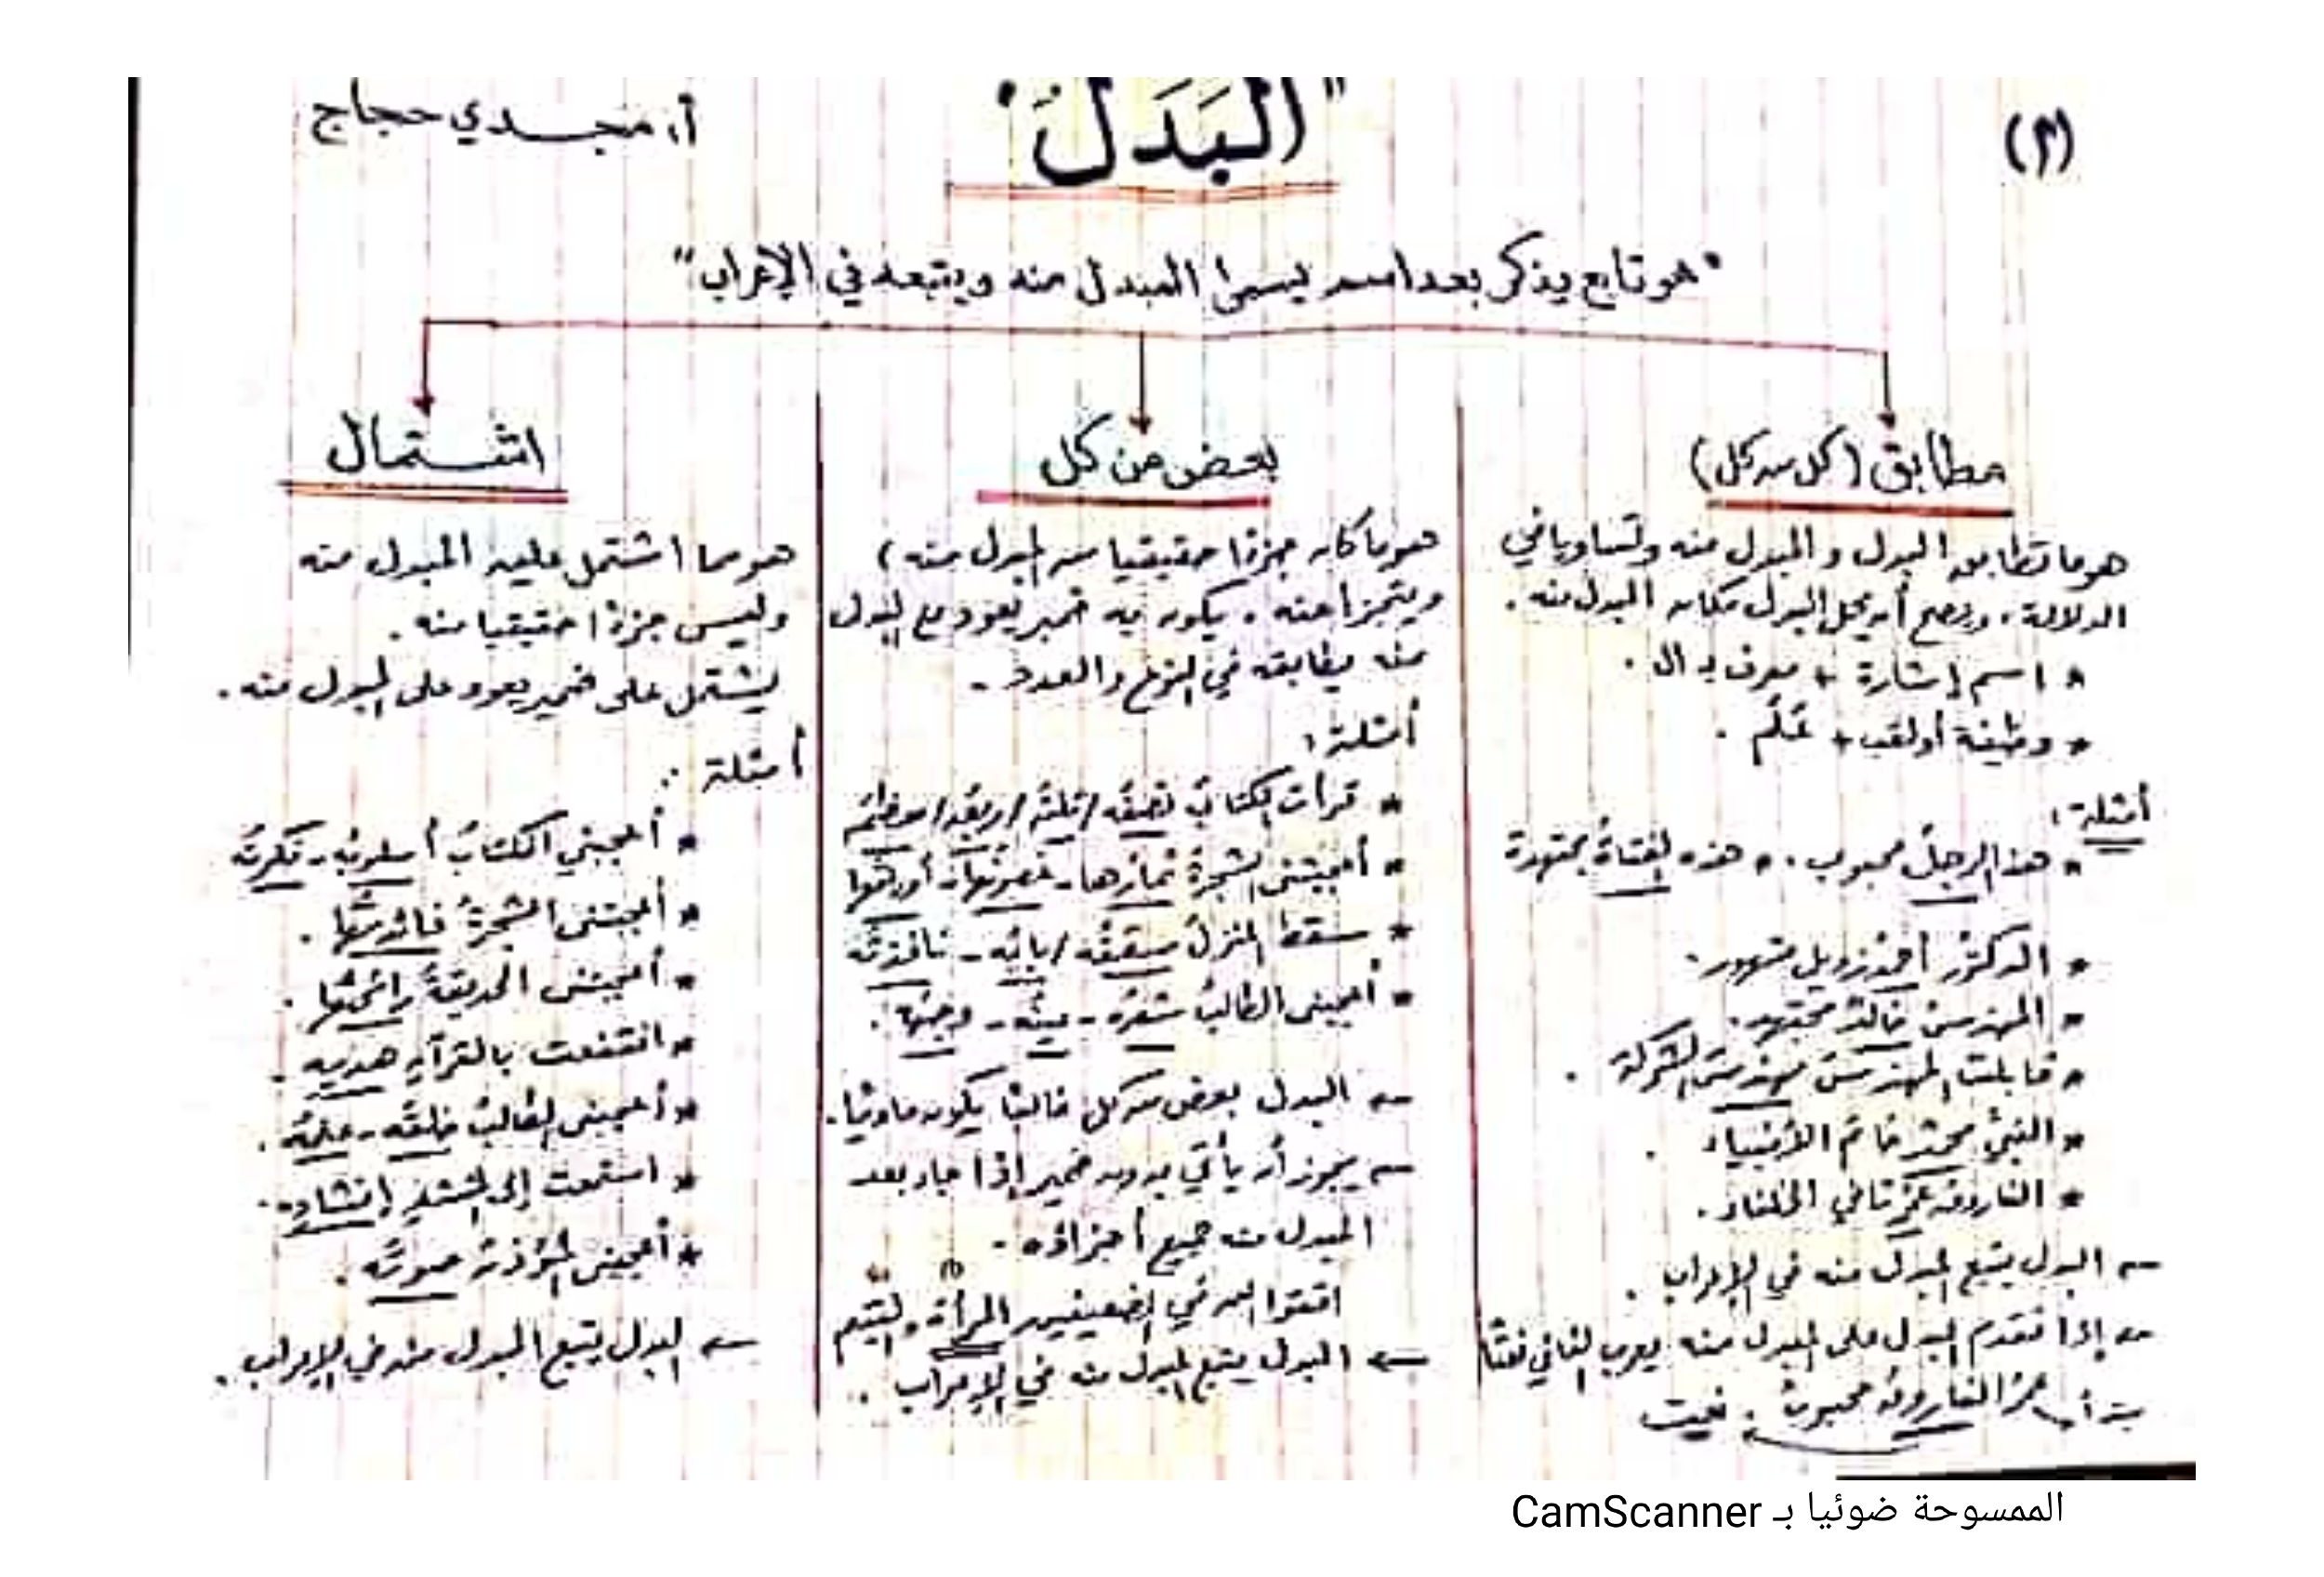 (٣)
"البَدَلُ"
أ. مجدي حجاج
"هو تابع يذكر بعد اسم يسمى المبدل منه ويتبعه في الإعراب"
مطابق (كل من كل)
هو ما تطابق البدل والمبدل منه وتساويا في
الدلالة، ويصح أن يحل البدل مكان المبدل منه.
* اسم إشارة + معرف بـ ال.
* وظيفة أو لقب + عَلَم.
أمثلة:
* هذا الرجلُ محبوب. * هذه الفتاةُ مجتهدة
* الدكتور أحمد زويل مشهور.
* المهندسُ خالدٌ مجتهد.
* قابلت المهندسَ مهندسَ الشركة.
* النبيُّ محمدٌ خاتم الأنبياء.
* الفاروق عمرُ ثاني الخلفاء.
← البدل يتبع المبدل منه في الإعراب.
← إذا تقدم البدل على المبدل منه يعرب الثاني نعتًا
عمرُ الفاروقُ محبوبٌ. نعت
بعض من كل
هو ما كان جزءًا حقيقيا من المبدل منه،
ويتجزأ عنه. يكون به ضمير يعود مع المبدل
منه يطابقه في النوع والعدد.
أمثلة:
* قرأت الكتابَ نصفَه / ثلثَه / ربعَه / معظمَه
* أعجبتني الشجرةُ ثمارُها - غصونُها - أوراقُها
* سقط المنزلُ سقفُه / بابُه - نافذتُه
* أعجبني الطالبُ شعرُه - عينُه - وجهُه.
← البدل بعض من كل غالبًا يكون ماديًا.
← يجوز أن يأتي بدون ضمير إذا جاء بعد
المبدل منه جميع أجزاؤه.
اتقوا الله في الضعيفين المرأة واليتيم
← البدل يتبع المبدل منه في الإعراب..
اشتمال
هو ما اشتمل عليه المبدل منه
وليس جزءًا حقيقيا منه.
يشتمل على ضمير يعود على المبدل منه.
أمثلة:
* أعجبني الكتابُ أسلوبُه - فكرتُه
* أعجبتني الشجرةُ فائدتُها.
* أعجبتني الحديقةُ رائحتُها.
* انتفعت بالقرآنِ هديِه.
* أعجبني الطالبُ خلقُه - علمُه.
* استمعت إلى المنشدِ إنشادِه.
* أعجبني المؤذنُ صوتُه.
← البدل يتبع المبدل منه في الإعراب.
الممسوحة ضوئيا بـ CamScanner